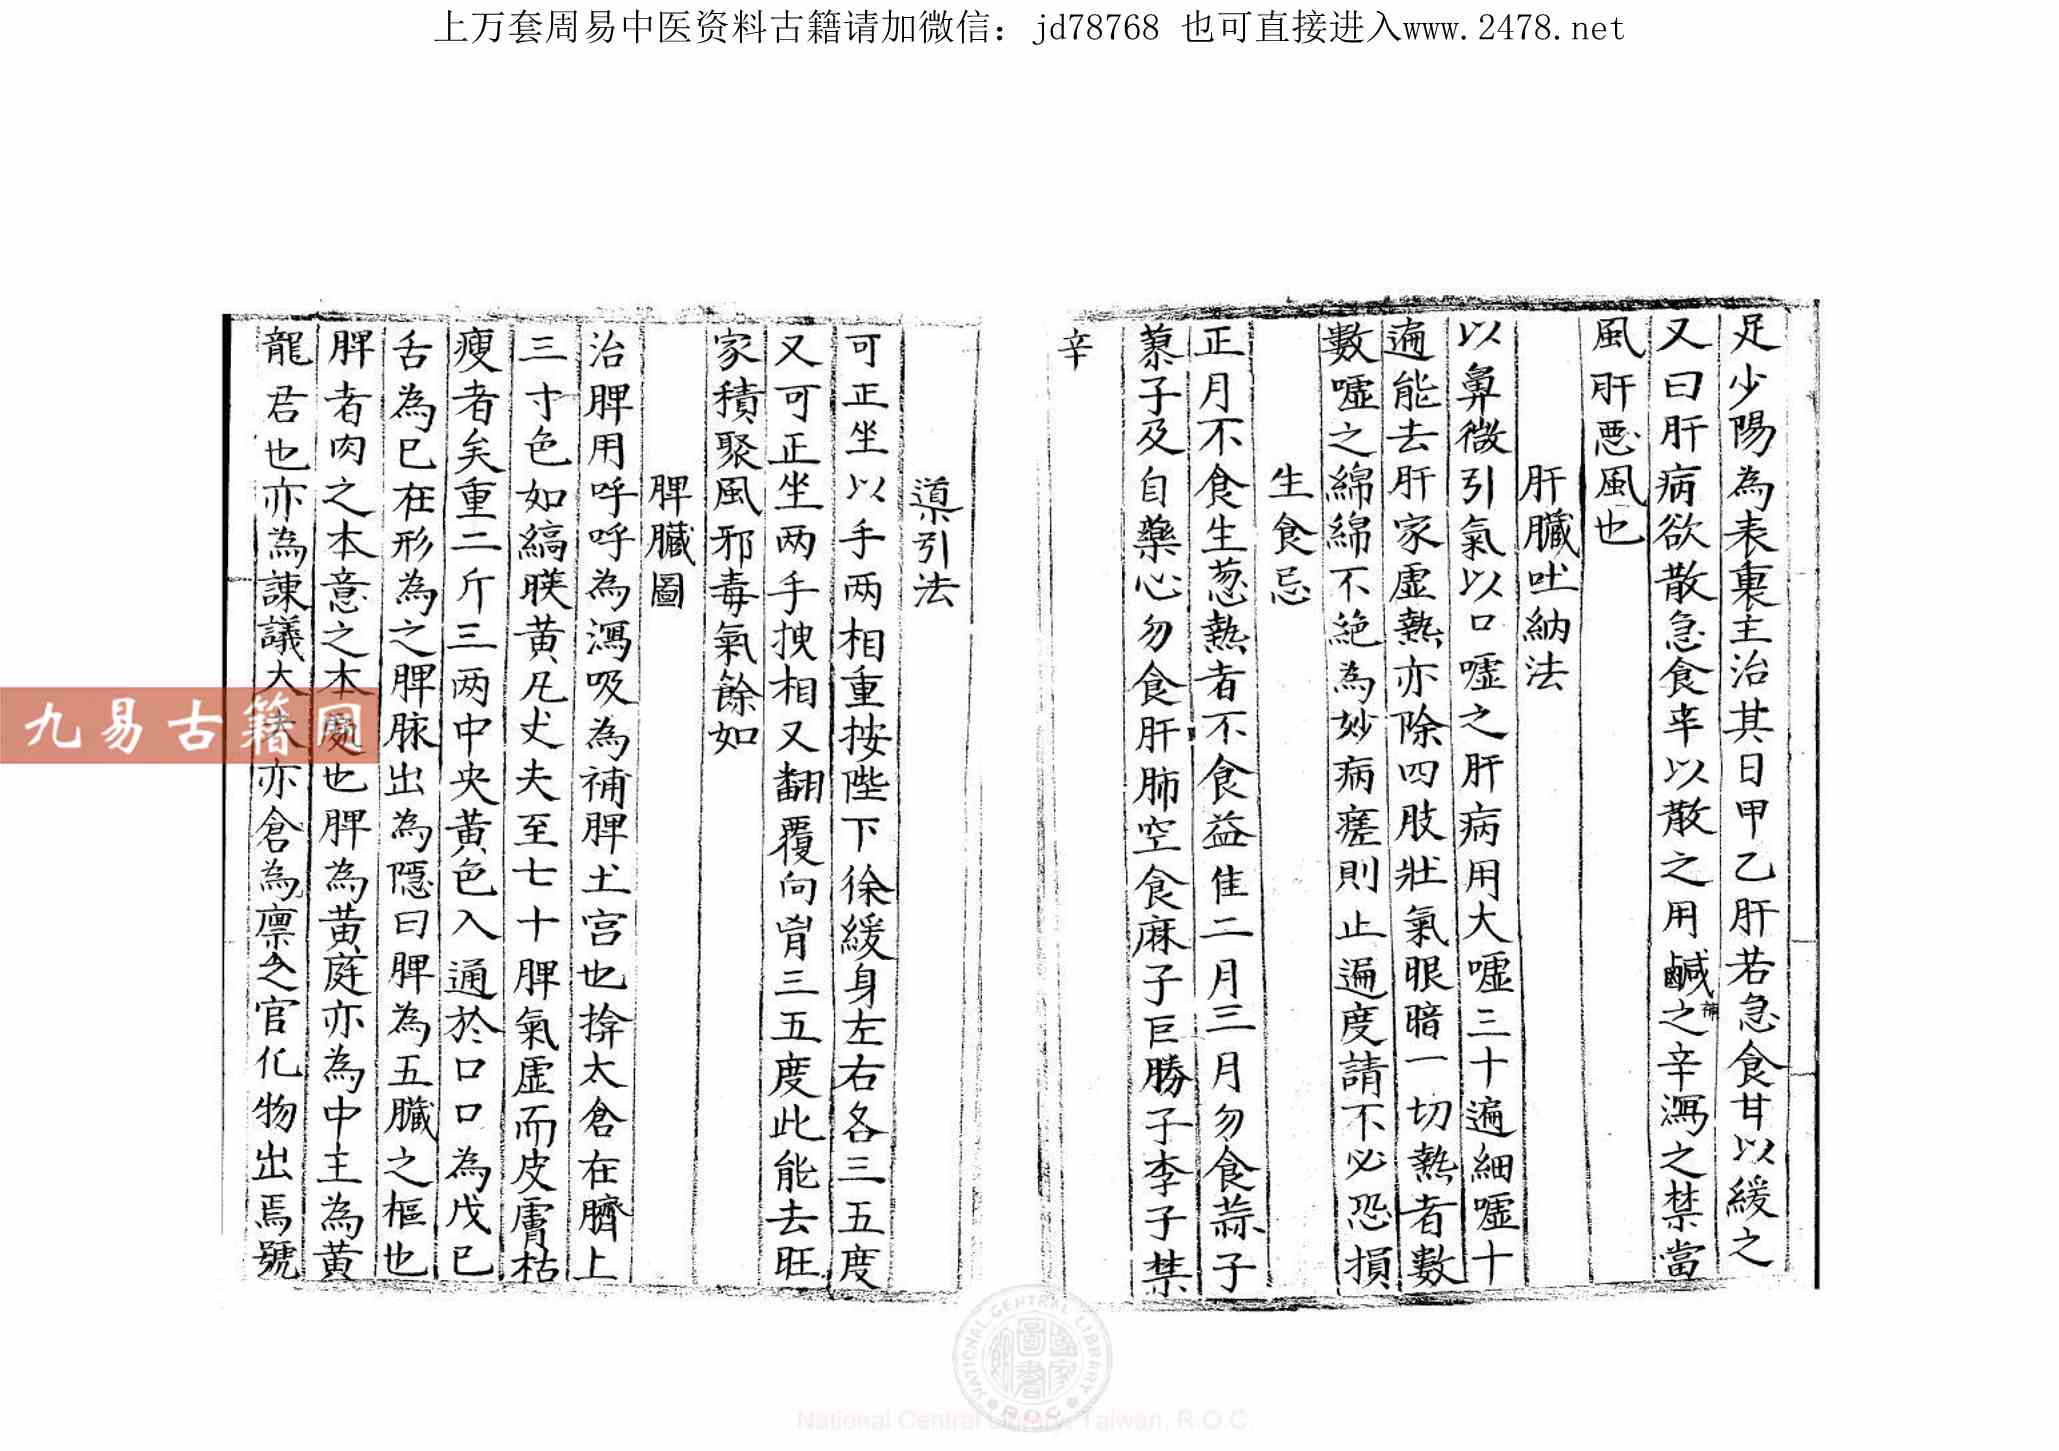 上万套周易中医资料古籍请加微信：jd78768 也可直接进入www.2478.net
足少陽為表裏主治其日甲乙肝若急食甘以緩之
又曰肝病欲散急食辛以散之用鹹補之辛瀉之禁當
風肝惡風也
肝臟吐納法
以鼻微引氣以口噓之肝病用大噓三十遍細噓十
遍能去肝家虛熱亦除四肢壯氣眼暗一切熱者數
數噓之綿綿不絶為妙病瘥則止遍度請不必恐損
生食忌
正月不食生葱熱者不食益佳二月三月勿食蒜子
蓼子及自藥心勿食肝肺空食麻子巨勝子李子禁
辛
導引法
可正坐以手兩相重按陛下徐緩身左右各三五度
又可正坐兩手拽相又翻覆向胷三五度此能去旺
家積聚風邪毒氣餘如
脾臟圖
治脾用呼呼為瀉吸為補脾土宫也揜太倉在臍上
三寸色如縞映黄凡丈夫至七十脾氣虛而皮膚枯
瘦者矣重二斤三兩中央黄色入通於口口為戊巳
舌為巳在形為之脾脉出為隱曰脾為五臟之樞也
脾者肉之本意之本處也脾為黄庭亦為中主為黄
龍君也亦為諌議大夫亦倉為廪之官化物出焉號
九易古籍网
NATIONAL CENTRAL LIBRARY
R.O.C
國家圖書館
National Central Library, Taiwan, R.O.C